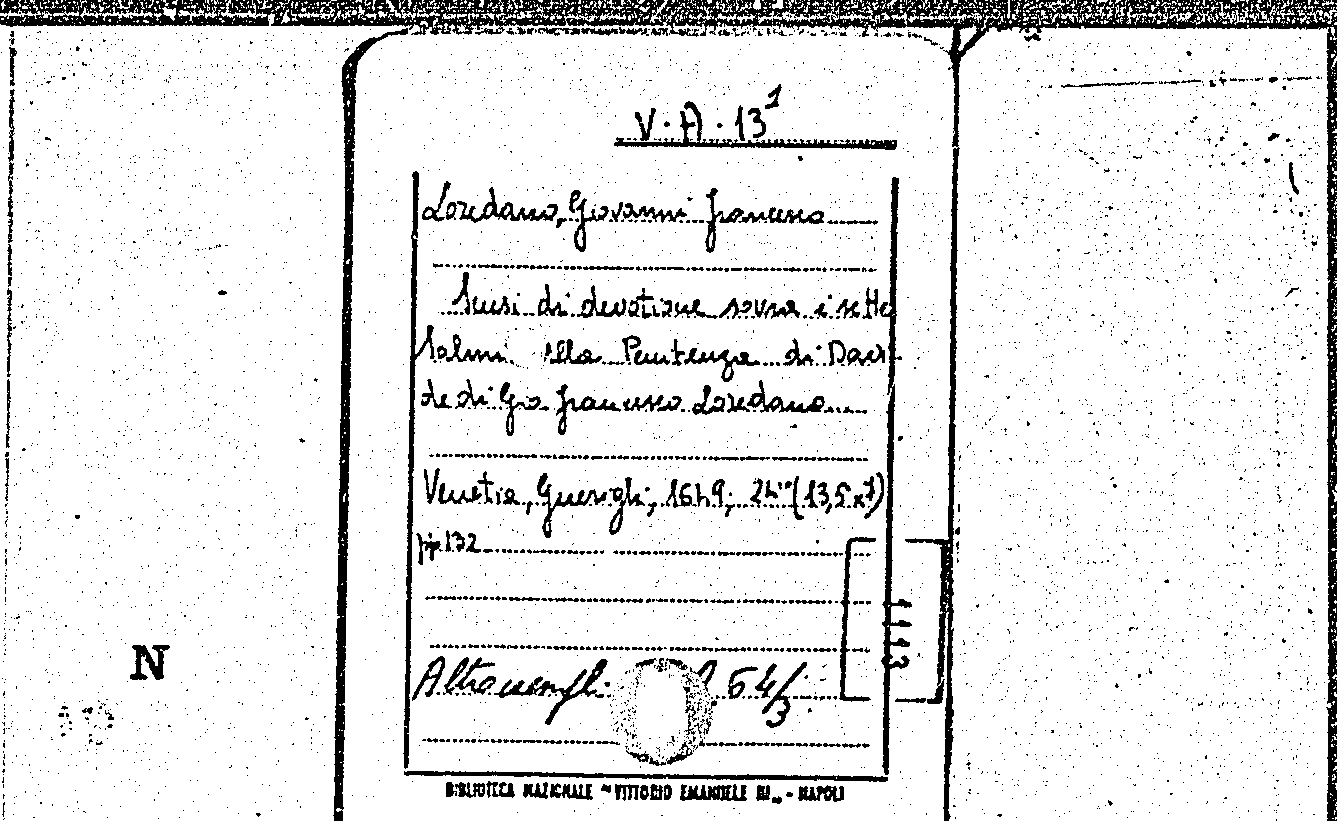 V.A.13¹
Loredano, Giovanni Francesco
Sensi di devotione sovra i sette
Salmi della Penitenza di Davi
de di Gio Francesco Loredano
Venetia, Guerigli, 1649; 24° (13,5x7)
pp. 132
Altro esempl. 54/3
1113
N
BIBLIOTECA NAZIONALE "VITTORIO EMANUELE III" - NAPOLI